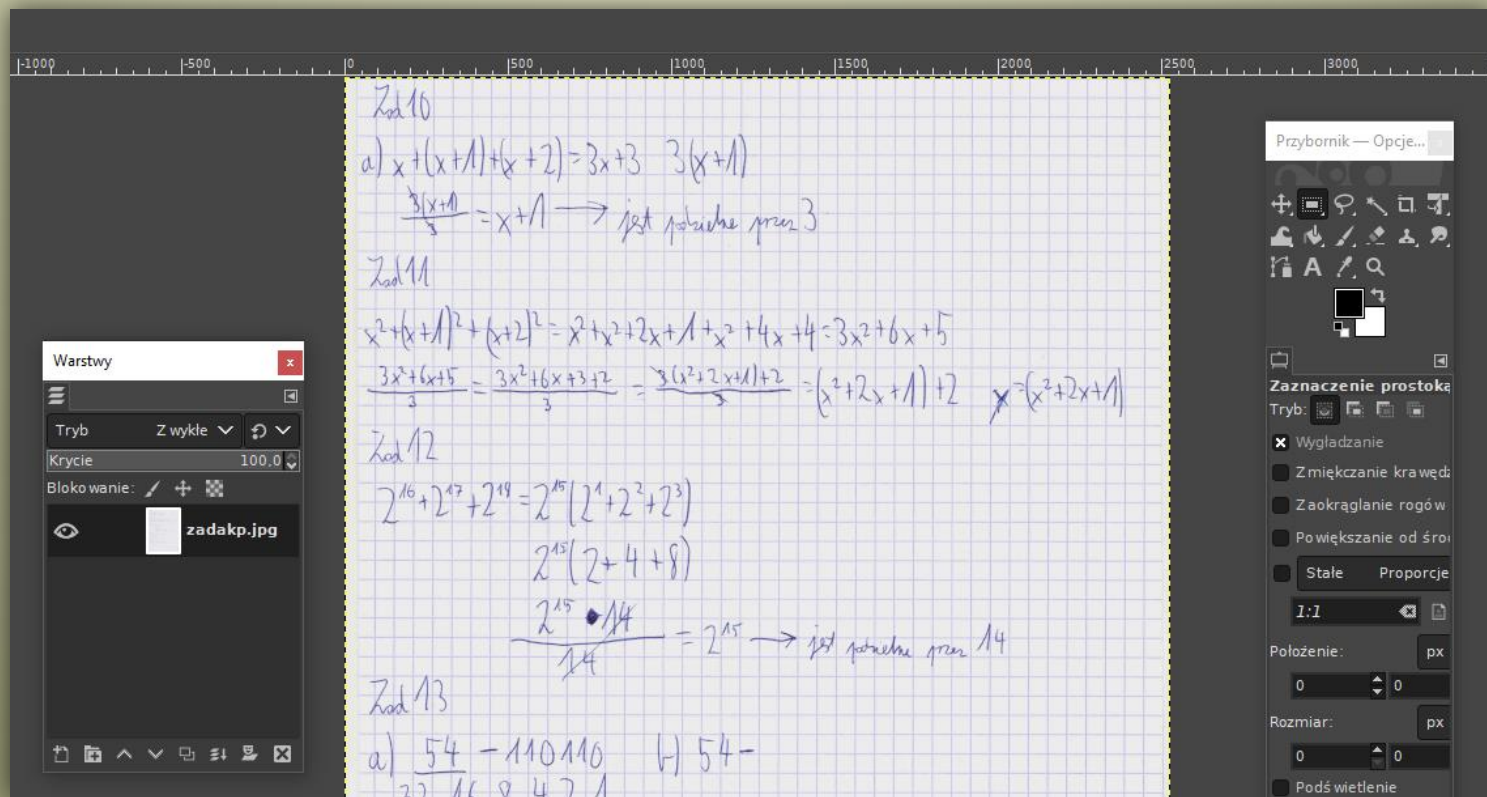 |-1000 |-500 |0 |500 |1000 |1500 |2000 |2500 |3000
Zad 10
a) x+(x+1)+(x+2)=3x+3 3(x+1)
3(x+1)/3 = x+1 → jest podzielne przez 3
Zad 11
x²+(x+1)²+(x+2)²=x²+x²+2x+1+x²+4x+4=3x²+6x+5
3x²+6x+5/3 = 3x²+6x+3+2/3 = 3(x²+2x+1)+2/3 =(x²+2x+1)+2 x=(x²+2x+1)
Zad 12
2¹⁶+2¹⁷+2¹⁸=2¹⁵(2¹+2²+2³)
2¹⁵(2+4+8)
2¹⁵•14/14 = 2¹⁵ → jest podzielne przez 14
Zad 13
a) 54 - 110110 b) 54-
32 16 8 4 2 1
Warstwy
x
Tryb Zwykłe
Krycie 100,0
Blokowanie:
zadakp.jpg
Przybornik — Opcje...
A
Zaznaczenie prostoką
Tryb:
Wygładzanie
Zmiękczanie krawędz
Zaokrąglanie rogów
Powiększanie od środ
Stałe Proporcje
1:1
Położenie: px
0 0
Rozmiar: px
0 0
Podświetlenie